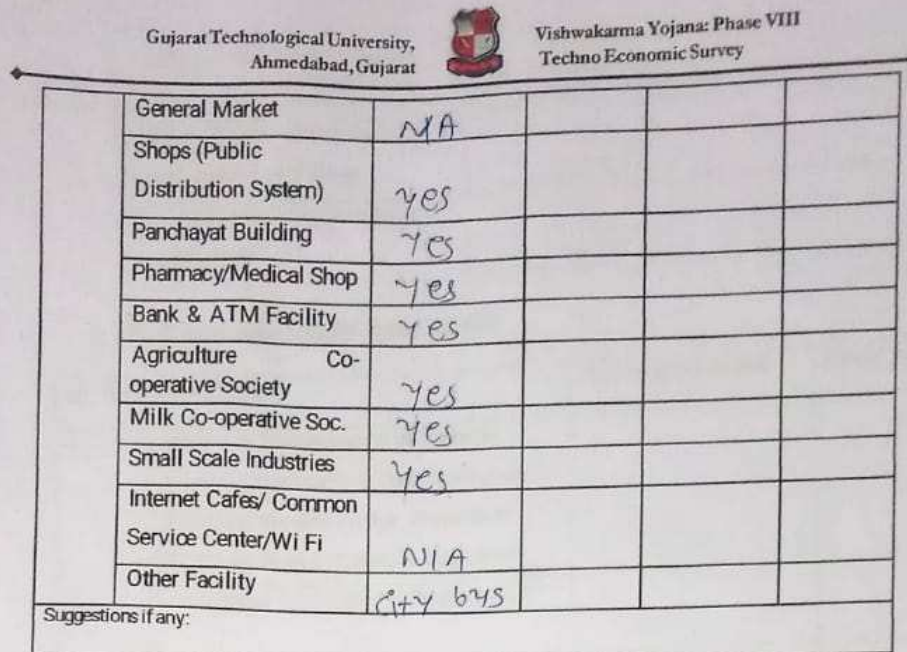 Gujarat Technological University,
Ahmedabad, Gujarat
Vishwakarma Yojana: Phase VIII
Techno Economic Survey
General Market NA
Shops (Public
Distribution System) yes
Panchayat Building Yes
Pharmacy/Medical Shop yes
Bank & ATM Facility yes
Agriculture Co-
operative Society yes
Milk Co-operative Soc. yes
Small Scale Industries yes
Internet Cafes/ Common
Service Center/Wi Fi N/A
Other Facility City bus
Suggestions if any: